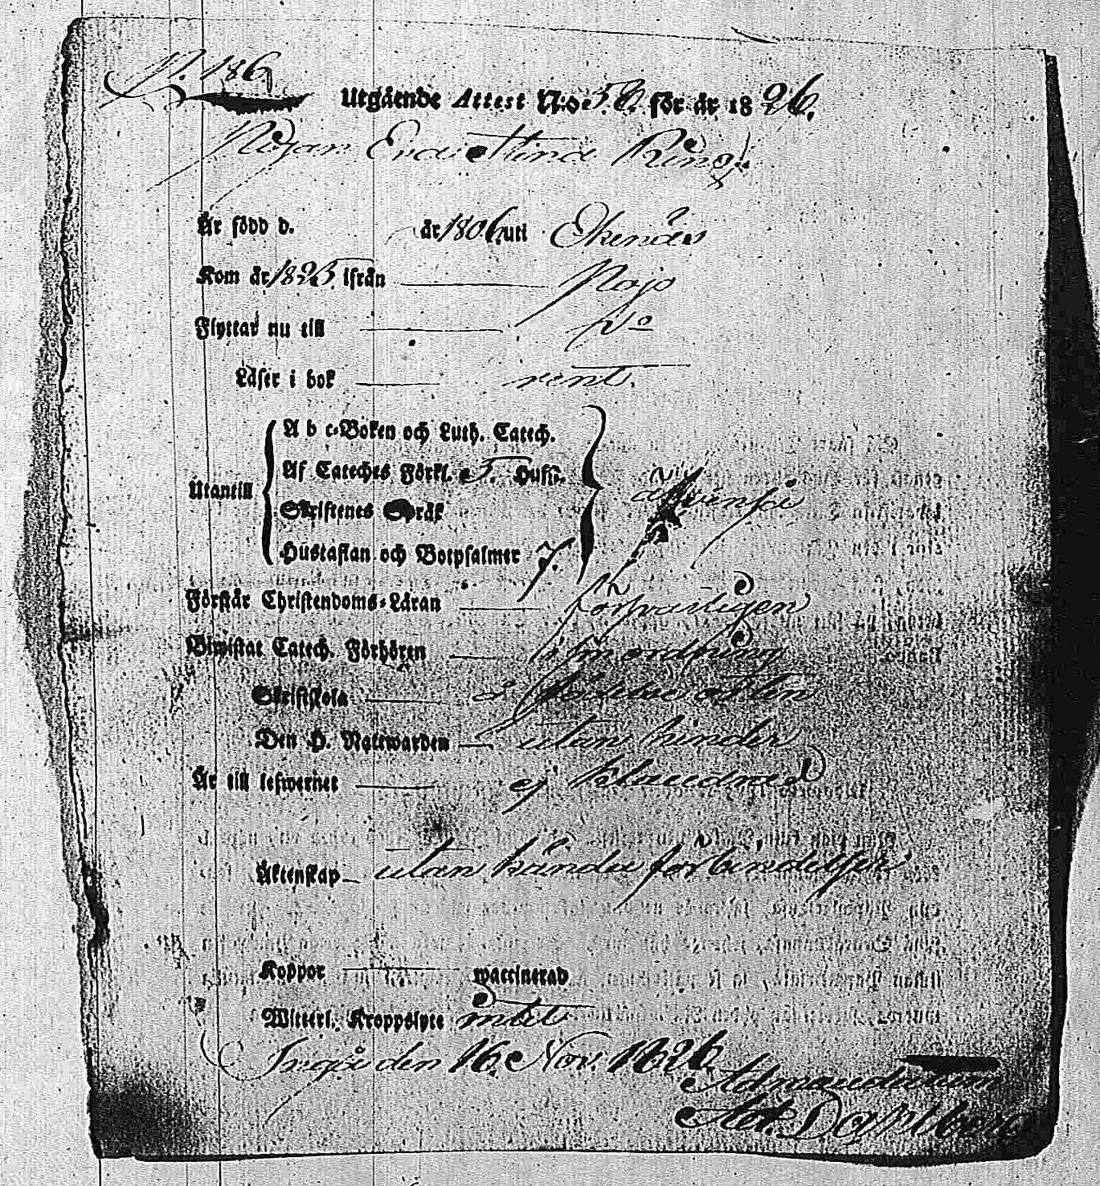 N. 186
Utgående Attest N:o 58. för år 1826.
Pigan Eva Stina Ring.
Är född d. år 1806 uti Ekenäs
Kom år 1825 ifrån Pojo
Flyttar nu till Do
Läser i bok rent.
A b c-Boken och Luth. Catech.
Af Cateches Förkl. 5. Hufst.
Utantill
Skriftenes Språk
Hustaflan och Botpsalmer 7.
Förstår Christendoms-Läran försvarligen
Biwistat Catech. Förhören i sin ordning
Skriftskola
Den H. Nattwarden utan hinder
Är till lefwernet ej klandrad
Äktenskap utan kända förbindelser
Koppor waccinerad
Witterl. Kroppslyte intet
Ingå den 16. Nov. 1826.
Ad mandatum